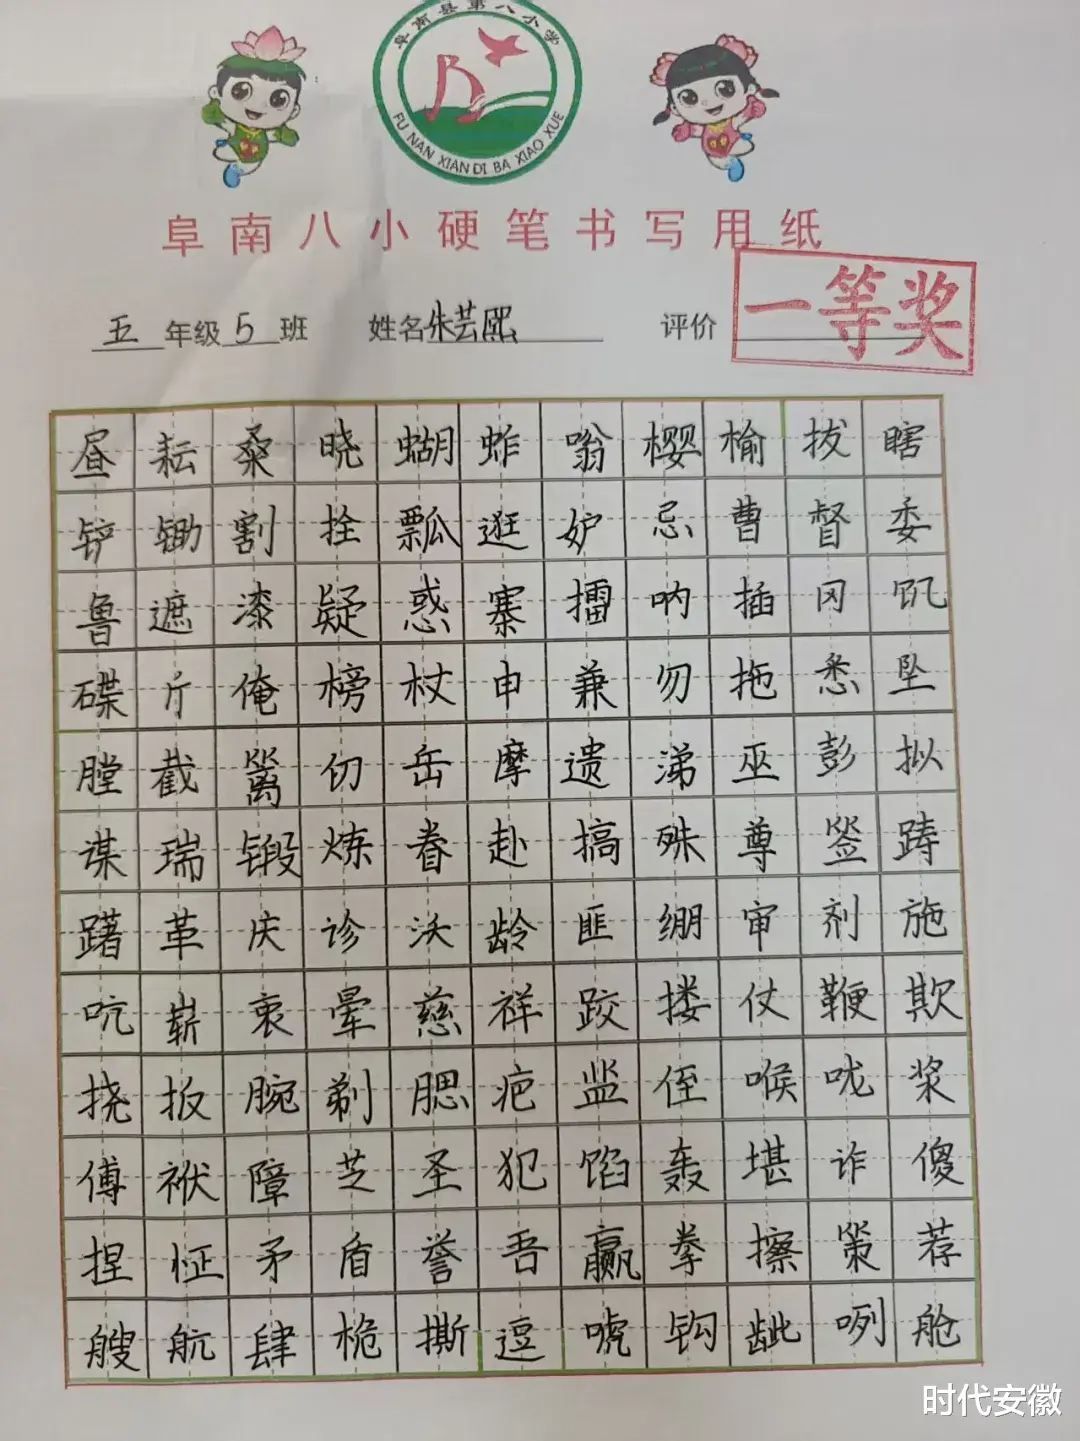 阜南县第八小学
FU NAN XIAN DI BA XIAO XUE
阜南八小硬笔书写用纸
五年级5班 姓名朱芸熙 评价 一等奖
昼耘桑晓蝴蚱嗡樱榆拔瞎
铲锄割拴瓢逛妒忌曹督委
鲁遮漆疑惑寨擂呐插冈饥
碟斤俺榜杖申兼勿拖悉坠
膛截篱仞岳摩遗涕巫彭拟
谋瑞锻炼眷赴搞殊尊签踌
躇革庆诊沃龄匪绷审剂施
吭崭衷晕慈祥跤搂仗鞭欺
挠扳腕剃腮疤监侄喉咙浆
傅袱障芝圣犯馅轰堪诈傻
捏怔矛盾誉吾赢拳擦策荐
艘航肆桅撕逗唬钩龇咧舱
时代安徽